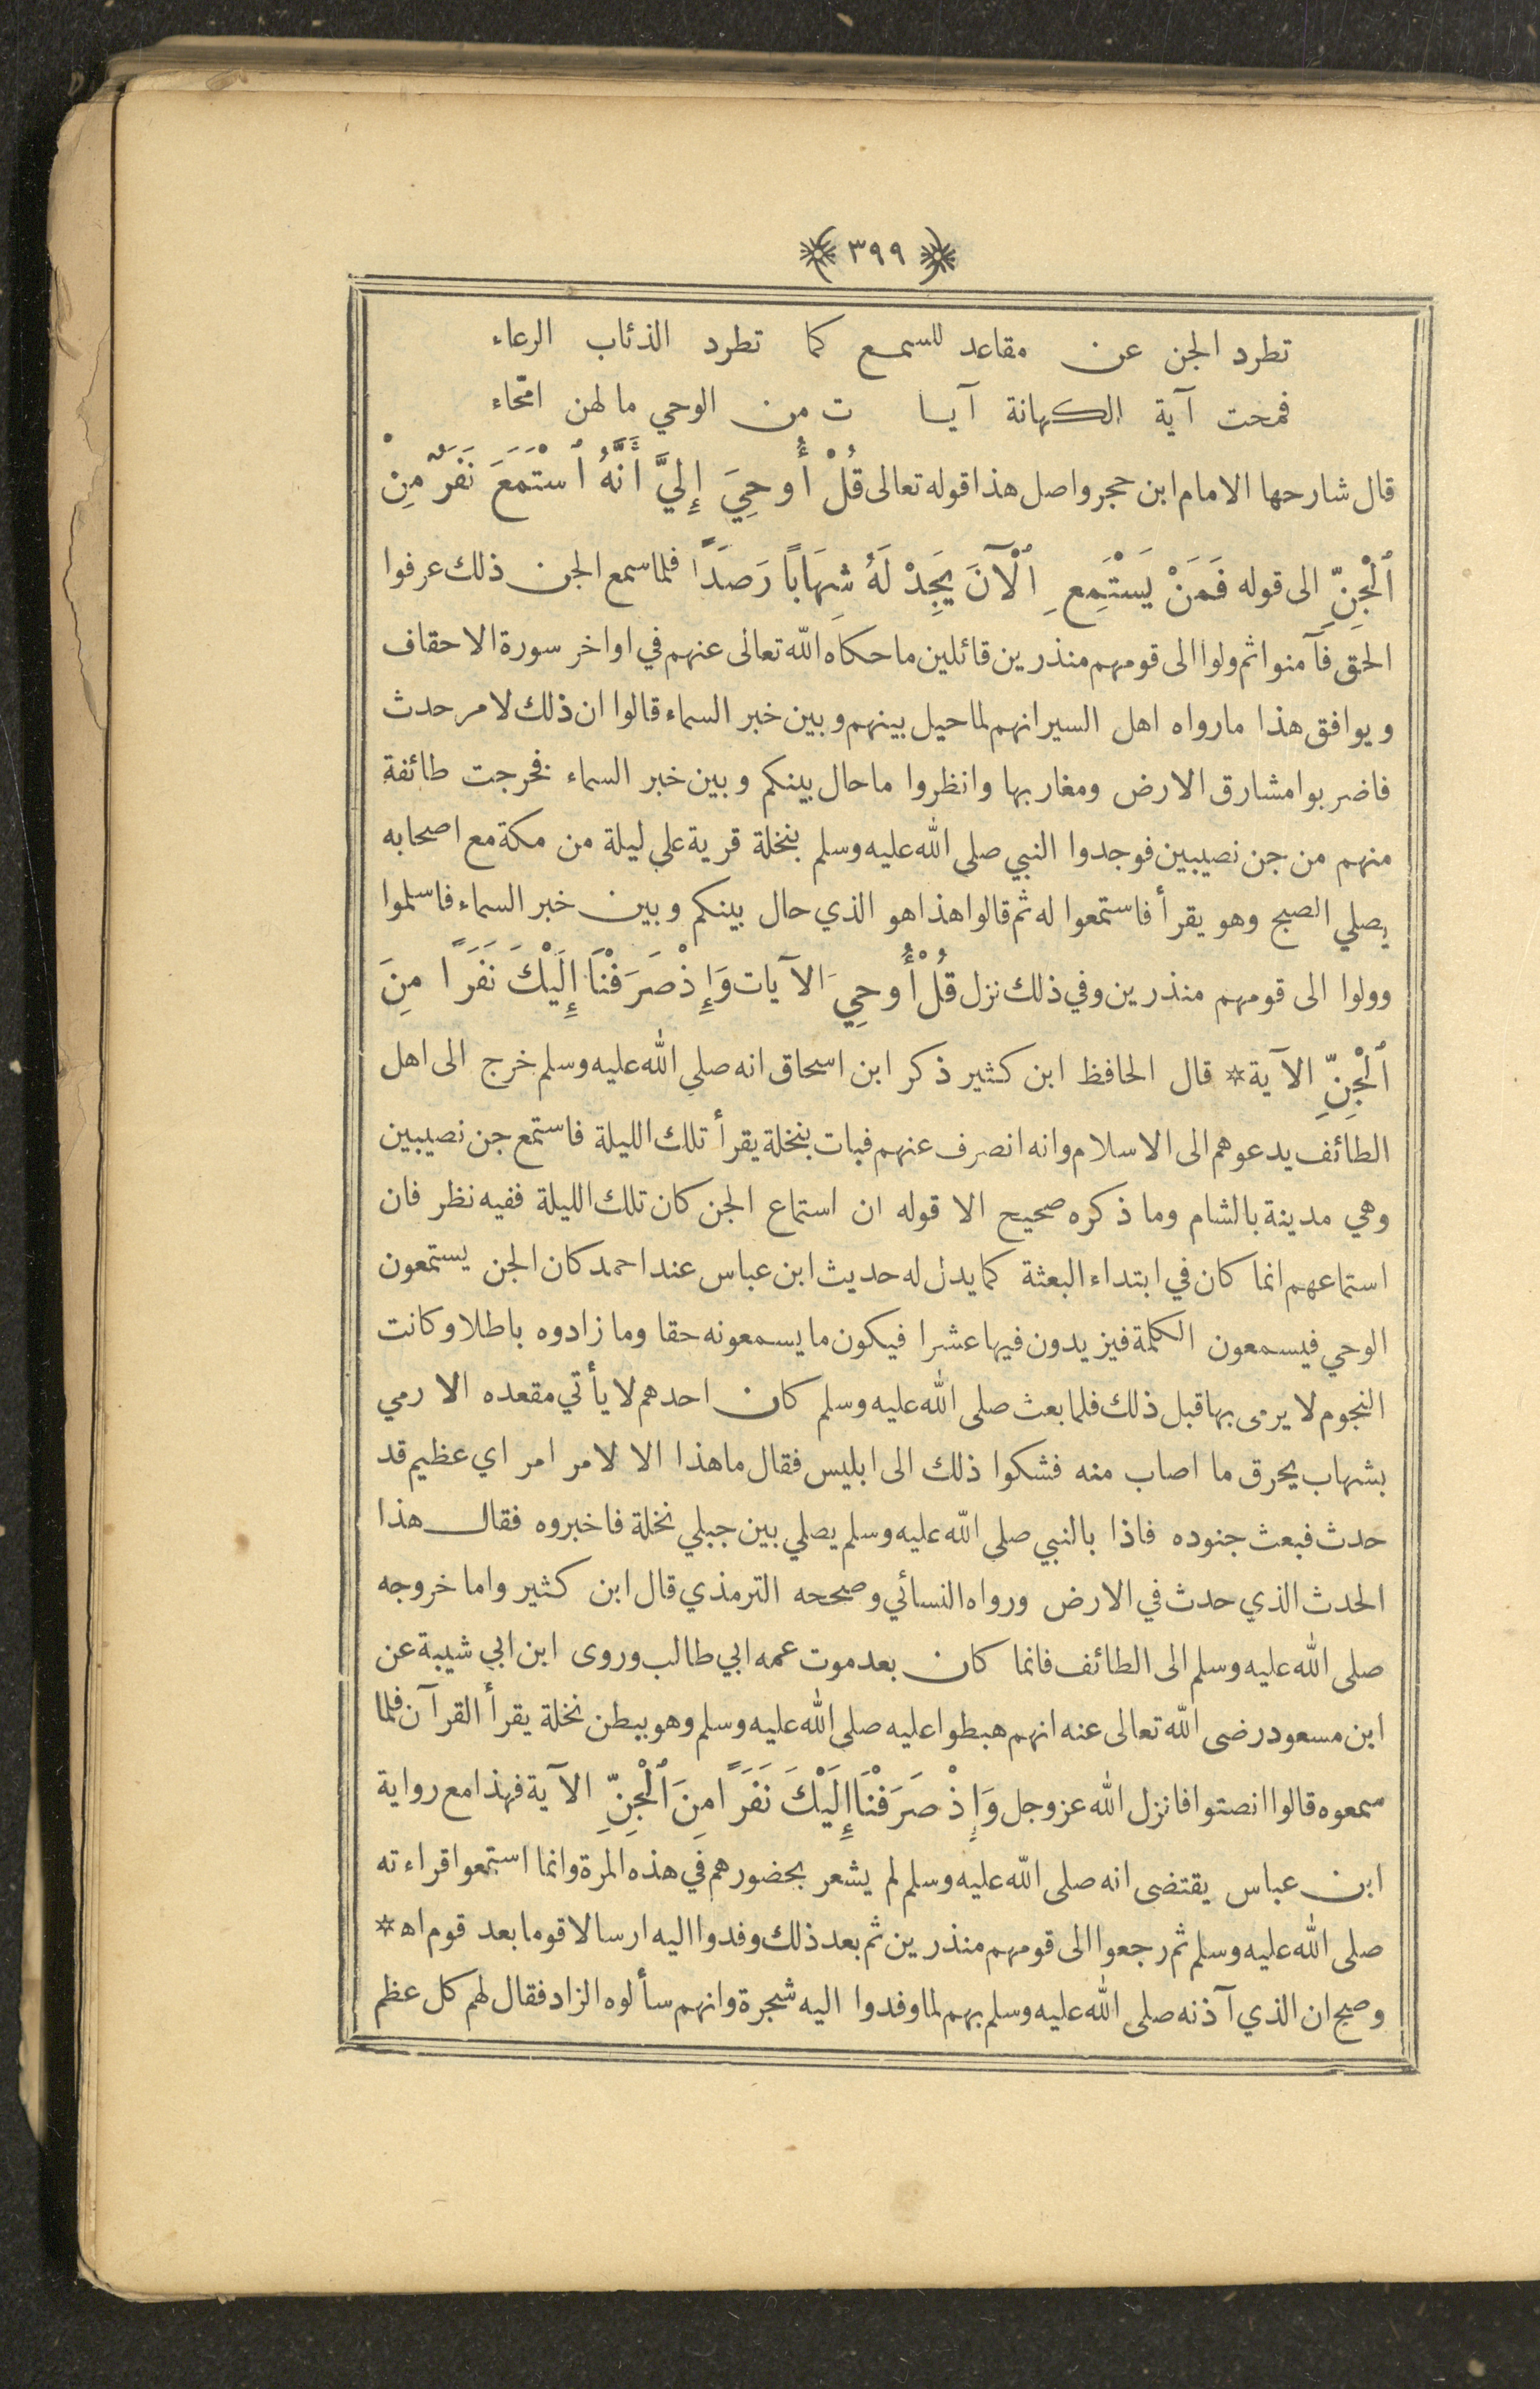 ﴿ ٣٩٩ ﴾
تطرد الجن عن مقاعد للسمع كما تطرد الذئاب الرعاء
فمحت آية الكهانة آيا ت من الوحي ما لهن امّحاء
قال شارحها الامام ابن حجر واصل هذا قوله تعالى قُلْ أُوحِيَ إِلَيَّ أَنَّهُ ٱسْتَمَعَ نَفَرٌ مِنْ
ٱلْجِنِّ الى قوله فَمَنْ يَسْتَمِعِ ٱلْآنَ يَجِدْ لَهُ شِهَابًا رَصَدًا فلما سمع الجن ذلك عرفوا
الحق فآمنوا ثم ولوا الى قومهم منذرين قائلين ما حكاه الله تعالى عنهم في اواخر سورة الاحقاف
ويوافق هذا ما رواه اهل السير انهم لما حيل بينهم وبين خبر السماء قالوا ان ذلك لامر حدث
فاضربوا مشارق الارض ومغاربها وانظروا ما حال بينكم وبين خبر السماء فخرجت طائفة
منهم من جن نصيبين فوجدوا النبي صلى الله عليه وسلم بنخلة قرية على ليلة من مكة مع اصحابه
يصلي الصبح وهو يقرأ فاستمعوا له ثم قالوا هذا هو الذي حال بينكم وبين خبر السماء فاسلموا
وولوا الى قومهم منذرين وفي ذلك نزل قُلْ أُوحِيَ الآيات وَإِذْ صَرَفْنَا إِلَيْكَ نَفَرًا مِنَ
ٱلْجِنِّ الآية * قال الحافظ ابن كثير ذكر ابن اسحاق انه صلى الله عليه وسلم خرج الى اهل
الطائف يدعوهم الى الاسلام وانه انصرف عنهم فبات بنخلة يقرأ تلك الليلة فاستمع جن نصيبين
وهي مدينة بالشام وما ذكره صحيح الا قوله ان استماع الجن كان تلك الليلة ففيه نظر فان
استماعهم انما كان في ابتداء البعثة كما يدل له حديث ابن عباس عند احمد كان الجن يستمعون
الوحي فيسمعون الكلمة فيزيدون فيها عشرا فيكون ما يسمعونه حقا وما زادوه باطلا وكانت
النجوم لا يرمى بها قبل ذلك فلما بعث صلى الله عليه وسلم كان احدهم لا يأتي مقعده الا رمي
بشهاب يحرق ما اصاب منه فشكوا ذلك الى ابليس فقال ما هذا الا لامر امر اي عظيم قد
حدث فبعث جنوده فاذا بالنبي صلى الله عليه وسلم يصلي بين جبلي نخلة فاخبروه فقال هذا
الحدث الذي حدث في الارض ورواه النسائي وصححه الترمذي قال ابن كثير واما خروجه
صلى الله عليه وسلم الى الطائف فانما كان بعد موت عمه ابي طالب وروى ابن ابي شيبة عن
ابن مسعود رضى الله تعالى عنه انهم هبطوا عليه صلى الله عليه وسلم وهو ببطن نخلة يقرأ القرآن فلما
سمعوه قالوا انصتوا فانزل الله عز وجل وَإِذْ صَرَفْنَا إِلَيْكَ نَفَرًا مِنَ ٱلْجِنِّ الآية فهذا مع رواية
ابن عباس يقتضى انه صلى الله عليه وسلم لم يشعر بحضورهم في هذه المرة وانما استمعوا قراءته
صلى الله عليه وسلم ثم رجعوا الى قومهم منذرين ثم بعد ذلك وفدوا اليه ارسالا قوما بعد قوم اه *
وصح ان الذي آذنه صلى الله عليه وسلم بهم لما وفدوا اليه شجرة وانهم سألوه الزاد فقال لهم كل عظم